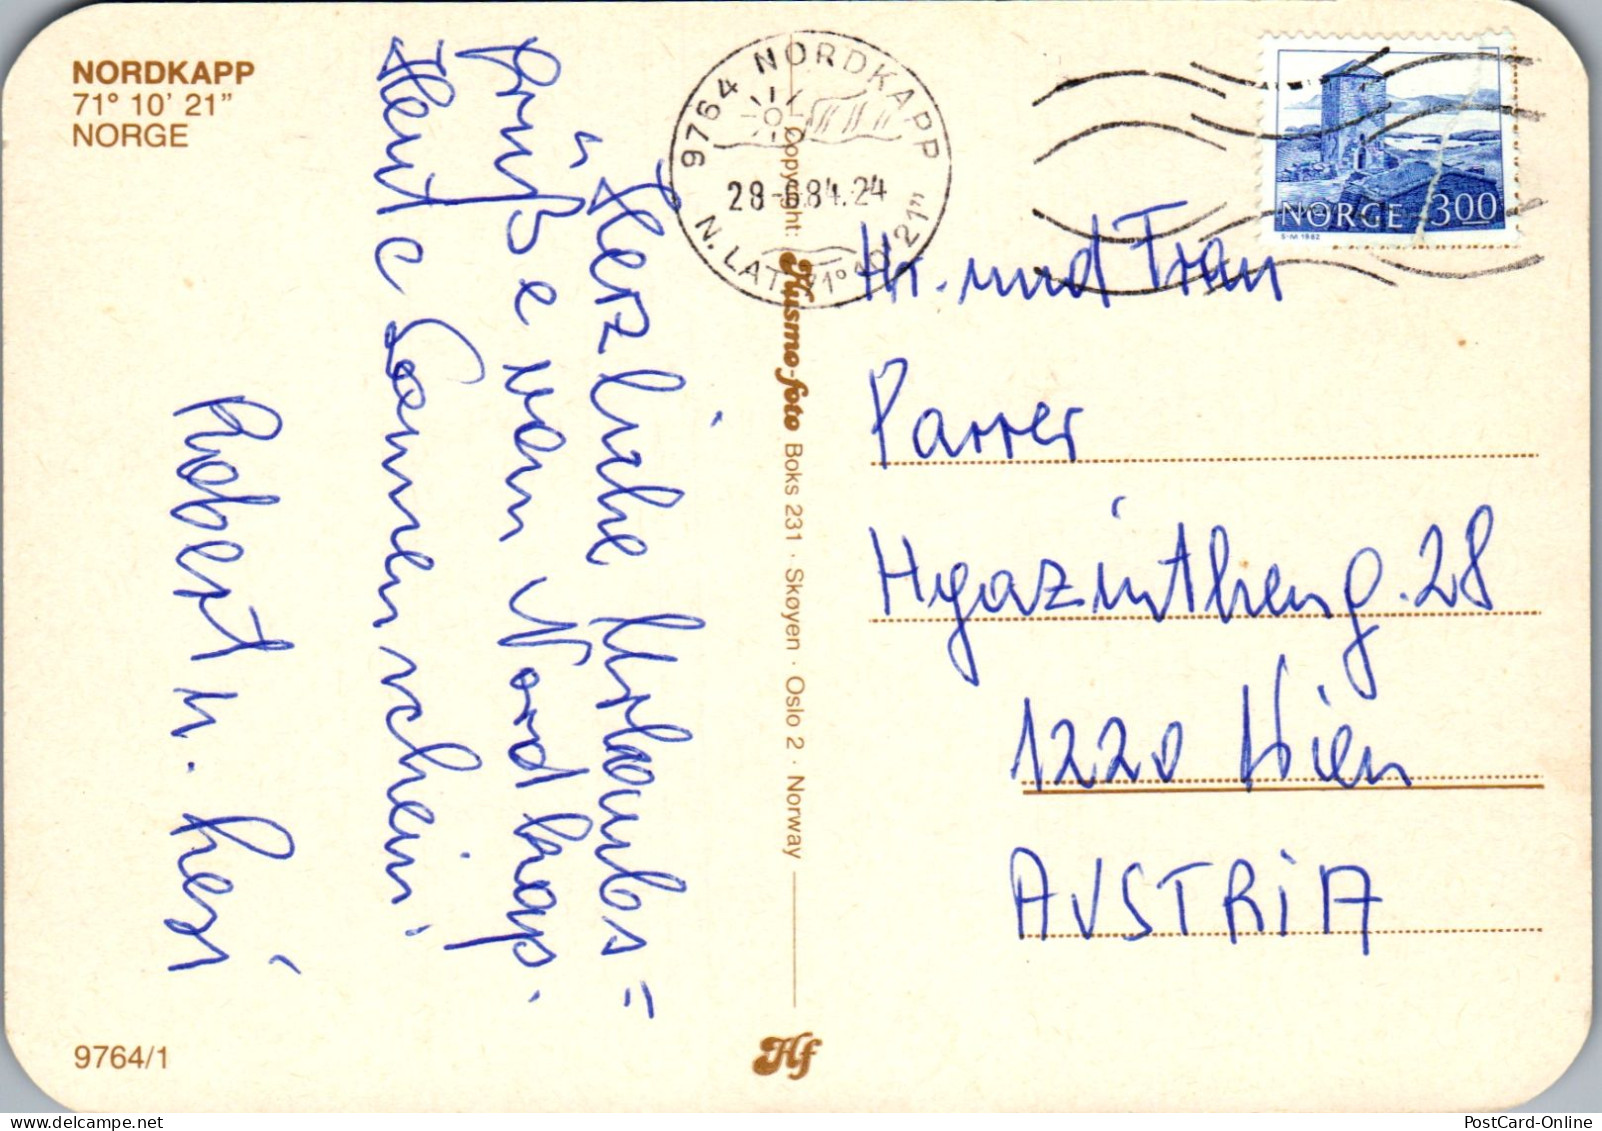 NORDKAPP
71° 10' 21"
NORGE
Herzliche Urlaubs=
grüße vom Nordkap.
Heute Sonnenschein!
Robert u. Resi
9764/1
Copyright: Husmo-foto Boks 231 · Skøyen · Oslo 2 · Norway
Hf
9764 NORDKAPP
28-6.84.24
N.LAT. 71°10'21"
NORGE 300
S-M 1982
Hr. und Frau
Parrer
Hyazintheng. 28
1220 Wien
AUSTRIA
PostCard-Online